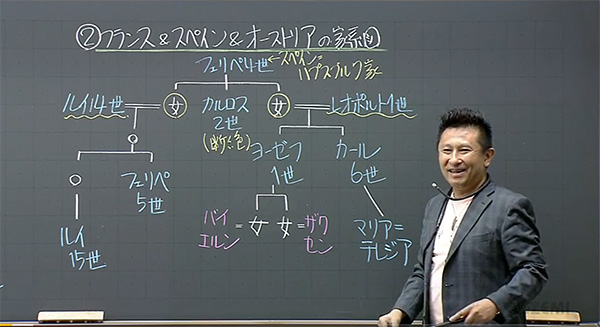 ②フランス&スペイン&オーストリアの家系図
フェリペ4世←スペイン=
ハプスブルク家
ルイ14世
女
カルロス
2世
(断絶)
女
レオポルト1世
ヨーゼフ
1世
カール
6世
フェリペ
5世
ルイ
15世
バイ
エルン
=女
女=
ザク
セン
マリア=
テレジア